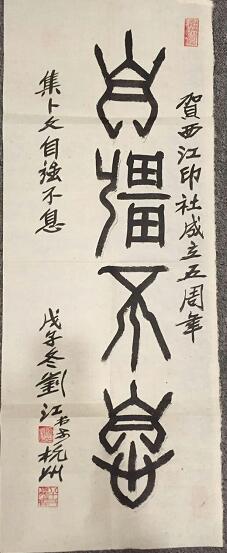 賀西江印社成立五周年
自彊不息
集卜文自強不息
戊子冬劉江书於杭州